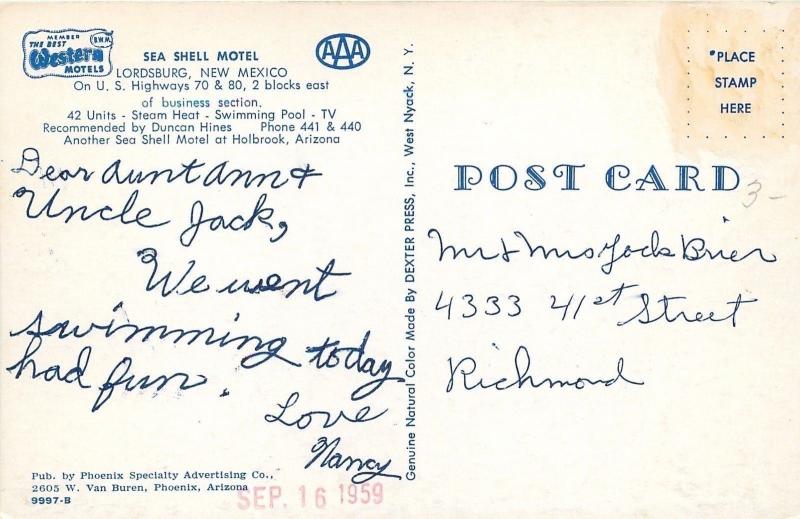 MEMBER
THE BEST B.W.M.
Western
MOTELS
AAA
SEA SHELL MOTEL
LORDSBURG, NEW MEXICO
On U. S. Highways 70 & 80, 2 blocks east
of business section.
42 Units - Steam Heat - Swimming Pool - TV
Recommended by Duncan Hines Phone 441 & 440
Another Sea Shell Motel at Holbrook, Arizona
Dear Aunt Ann &
Uncle Jack,
We went
swimming today
had fun.
Love
Nancy
Pub. by Phoenix Specialty Advertising Co.,
2605 W. Van Buren, Phoenix, Arizona
9997-B
SEP. 16 1959
Genuine Natural Color Made By DEXTER PRESS, Inc., West Nyack, N. Y.
PLACE
STAMP
HERE
POST CARD
3-
Mr & Mrs Jack Brier
4333 41st Street
Richmond